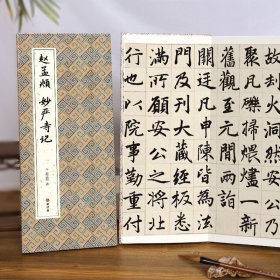 赵孟頫 妙严寺记
故刹洞然安公乃
聚瓦礫掃煨燼一新
舊觀至元間兩詣
闕廷凡申陳皆為法
門及刊大藏經板悉
滿所願安公之將北
行也以院事勤重付